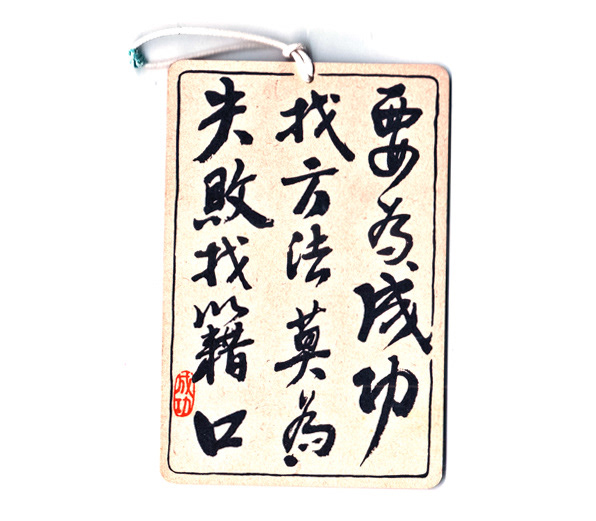 要為成功
找方法莫為
失敗找籍口
成功